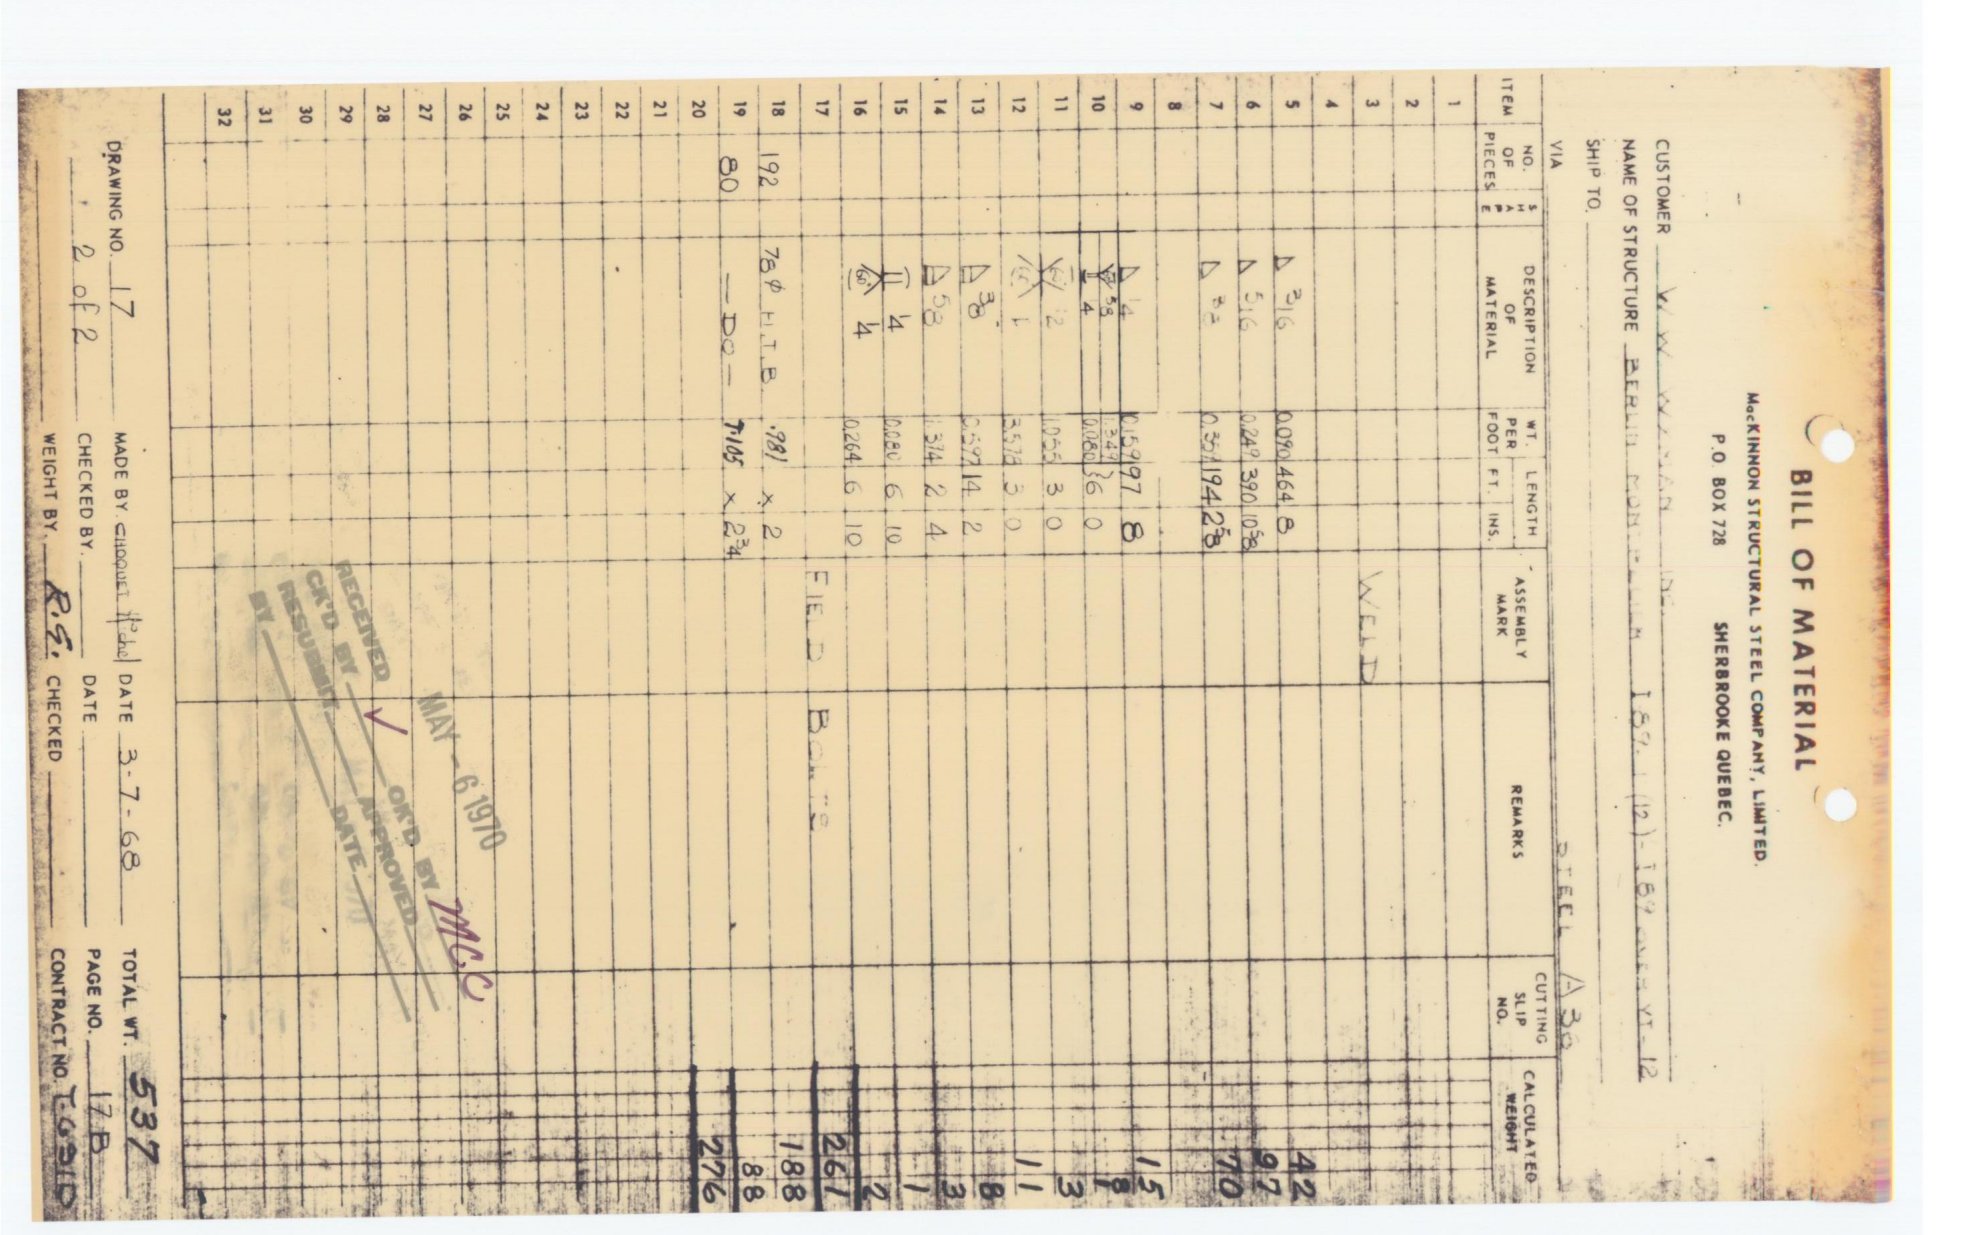 BILL OF MATERIAL
MacKINNON STRUCTURAL STEEL COMPANY, LIMITED.
P.O. BOX 728 SHERBROOKE QUEBEC.
CUSTOMER W W WYMAN INC.
NAME OF STRUCTURE BERLIN MONTPELIER I 89 (12) - I 89 VT-12
SHIP TO
VIA STEEL A 36
ITEM NO. OF PIECES SHAPE DESCRIPTION OF MATERIAL WT. PER FOOT LENGTH FT. INS. ASSEMBLY MARK REMARKS CUTTING SLIP NO. CALCULATED WEIGHT
1
2
3 WELD
4
5 3/16 0.090 464 8 42
6 5/16 0.249 390 10 5/8 97
7 3/8 194 2 5/8 70
8
9 1/4 0.159 97 8 15
10 5/8 1.349 1/4 0.080 } 6 0 8 1
11 1/2 1.055 3 0 3
12 1 3.578 3 0 11
13 3/8 0.597 14 2 8
14 5/8 1.374 2 4 3
15 1/4 0.080 6 10 1
16 1/4 0.264 6 10 2
17 FIELD BOLTS 261
18 192 7/8 φ H.T.B .981 x 2 188
19 80 — DO — 1.105 x 2 3/4 88
20 276
21
22
23
24
25
26
27
28
29
30
31
32
MAY - 6 1970
RECEIVED
CK'D BY ✓ OK'D BY MCC
RESUBMIT APPROVED
BY DATE
DRAWING NO. 17 MADE BY. CHOQUET DATE 3-7-68 TOTAL WT. 537
2 of 2 CHECKED BY. DATE PAGE NO. 17B
WEIGHT BY. R.G. CHECKED CONTRACT NO.